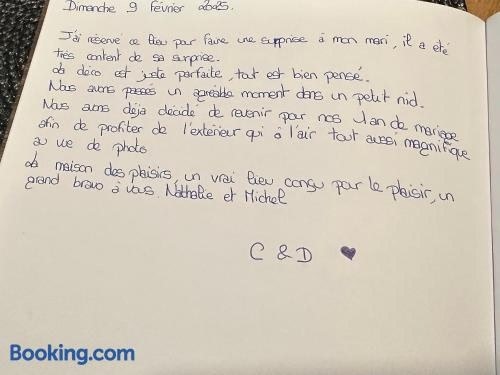 Dimanche 9 Février 2025.
J'ai réservé ce lieu pour faire une surprise à mon mari, il a été
très content de sa surprise.
La déco est juste parfaite, tout est bien pensé.
Nous avons passés un agréable moment dans un petit nid.
Nous avons déjà décidé de revenir pour nos 1 an de mariage
afin de profiter de l'extérieur qui à l'air tout aussi magnifique
au vue de photo
La maison des plaisirs, un vrai lieu conçu pour le plaisir, un
grand bravo à vous. Nathalie et Michel
C & D ♥
Booking.com